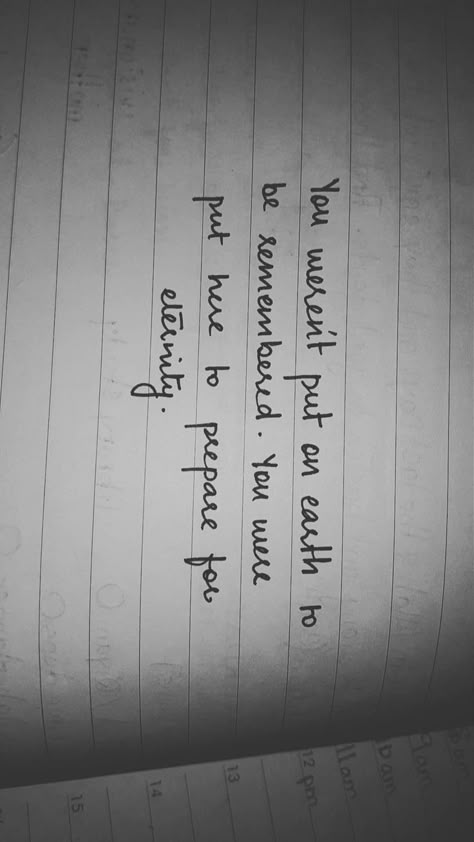 You weren't put on earth to
be remembered. You were
put here to prepare for
eternity.
9am
10am
11am
12 pm
13
14
15